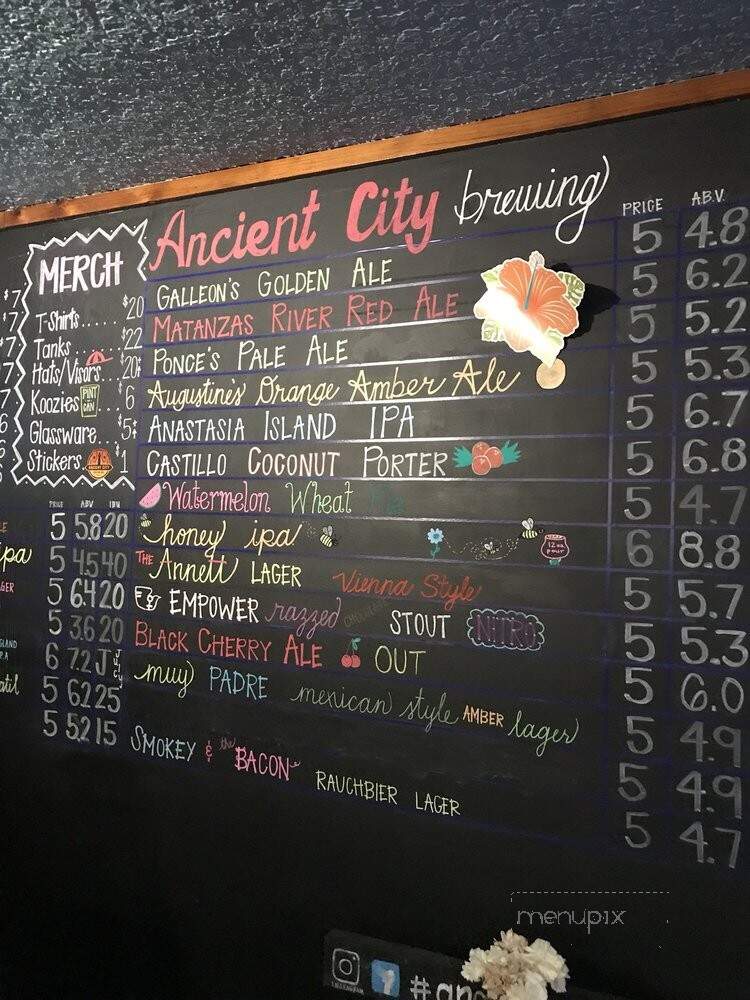 Ancient City brewing
PRICE A.B.V.
GALLEON'S GOLDEN ALE 5 4.8
MATANZAS RIVER RED ALE 5 6.2
PONCE'S PALE ALE 5 5.2
Augustine's Orange Amber Ale 5 5.3
ANASTASIA ISLAND IPA 5 6.7
CASTILLO COCONUT PORTER 5 6.8
Watermelon Wheat 5 4.7
honey ipa 12oz pour 6 8.8
THE Annett LAGER Vienna Style 5 5.7
EMPOWER razzed CHOCOLATE STOUT NITRO 5 5.3
BLACK CHERRY ALE OUT 5 6.0
muy PADRE mexican style AMBER lager 5 4.9
5 4.9
SMOKEY & the BACON RAUCHBIER LAGER 5 4.7
MERCH
T-Shirts.... $20
Tanks....... $22
Hats/Visors... 20+
Koozies PINT CAN $6
Glassware... $5+
Stickers. ANCIENT CITY $1
$7
PRICE ABV IBU
5 5.8 20
ipa 5 4.5 40
5 6.4 20
5 3.6 20
6 7.2 Juicy
5 6.2 25
5 5.2 15
menupix
INSTAGRAM f #an